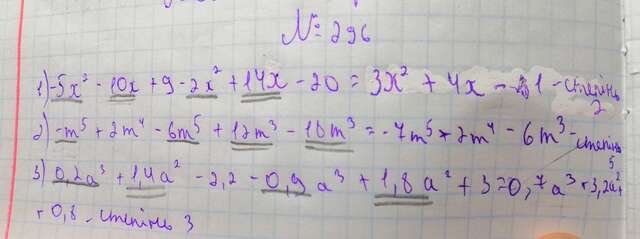 № 296
1) -5x² - 10x + 9 - 2x² + 14x - 20 = 3x² + 4x - 1 - степінь 2
2) -m⁵ + 2m⁴ - 6m⁵ + 12m³ - 18m³ = -7m⁵ + 2m⁴ - 6m³ - степінь 5
3) 0,2a³ + 1,4a² - 2,2 - 0,9a³ + 1,8a² + 3 = 0,7a³ + 3,2a² +
+ 0,8 - степінь 3